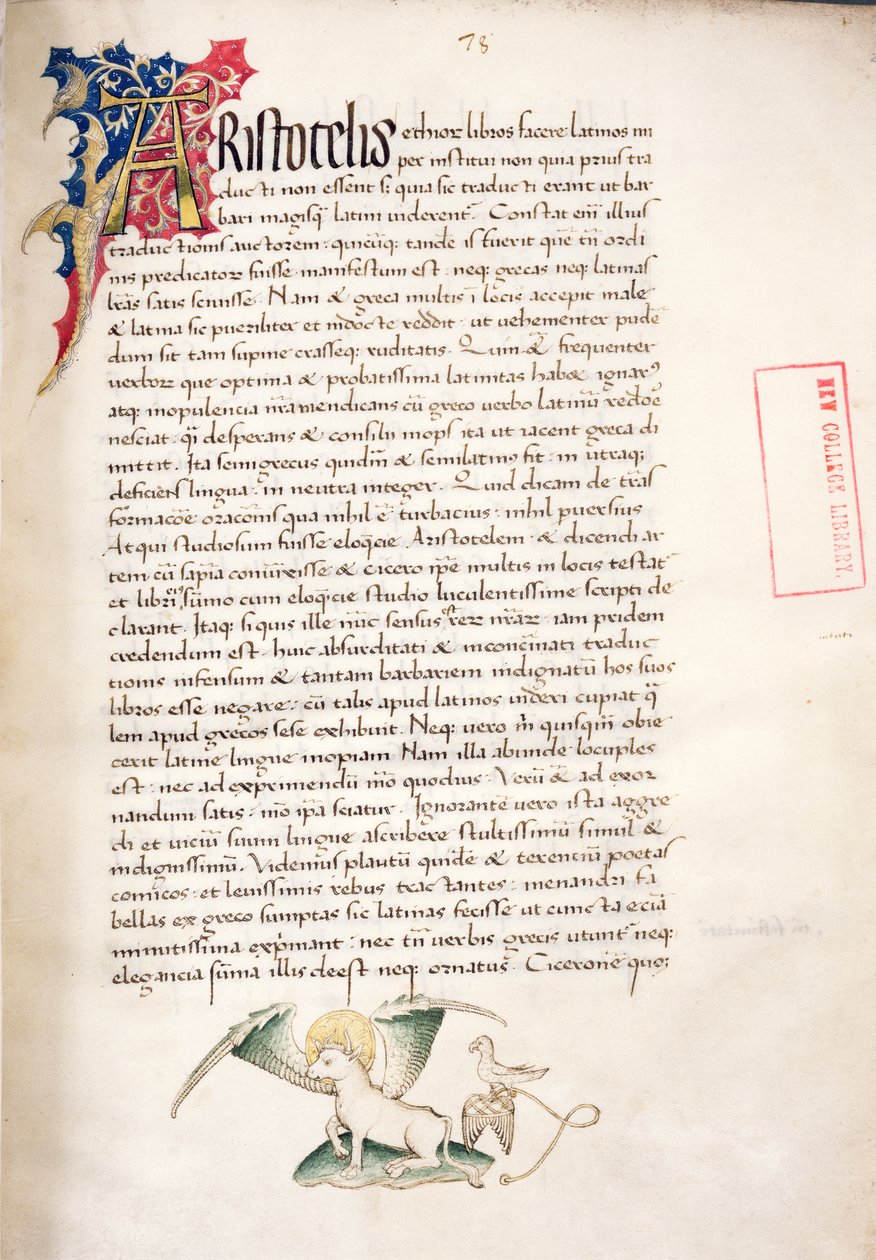 78
ARistotelis ethicor libros facere latinos nu
per institui non quia prius tra
ducti non essent s; quia sic traducti erant ut bar
bari magisq̃ latini viderent᷑. Constat em̃ illius
traductionis auctorem: quicũq; tandẽ is fuerit quẽ tñ ordi
nis predicator fuisse manifestum est: neq; grecas neq; latinas
lr̃as satis sciuisse. Nam & greca multis ĩ locis accepit male
& latina sic pueriliter et indocte reddit: ut vehementer pudẽ
dum sit tam supine crasseq; ruditatis. Quin & frequenter
verbor que optima & probatissima latinitas hab& ignar⁹
atq; inopulencia nr̃a mendicans cũ greco verbo latinũ reddẽ
nesciat: q̃i desperans & consilii inops ita ut iacent greca di
mittit. Ita semigrecus quidm̃ & semilatin⁹ fit: in utraq;
deficiens lingua: in neutra integer. Quid dicam de trãs
formacõe oracõnis qua nihil ẽ turbacius: nihil puersius
Atqui studiosum fuisse eloq̃cie Aristotelem & dicendi ar
tem cũ sapĩa coniũxisse & cicero ip̃e multis in locis testat᷑
et libri ei⁹ sũmo cum eloq̃cie studio luculentissime scripti de
clarant. Itaq; si quis ille nũc sensus est rer nr̃ar: iam pridem
credendum est: huic absurditati & inconcĩnitati traduc
tionis infensum & tantam barbariem indignatũ hos suos
libros esse negare: cũ talis apud latinos videri cupiat q̃
lem apud grecos sese exhibuit. Neq; vero m̃ quisquĩ obie
cerit latine lingue inopiam. Nam illa abunde locuples
est: nec ad exprimendũ mõ quoduis: Verũ & ad exor
nandum satis: mõ ip̃a sciatur. Ignorantẽ vero ista aggre
di et viciũ suum lingue ascribere stultissimũ simul &
indignissimũ. Videmus plautũ quidẽ & terenciũ poetas
comicos: et levissimis rebus tractantes: menandri fa
bellas ex greco sumptas sic latinas fecisse ut cuncta eciã
minutissima exp̃mant: nec tñ verbis grecis utunt᷑ neq;
elegancia sũma illis deest neq; ornatus. Ciceronẽ quo;
NEW COLLEGE LIBRARY.